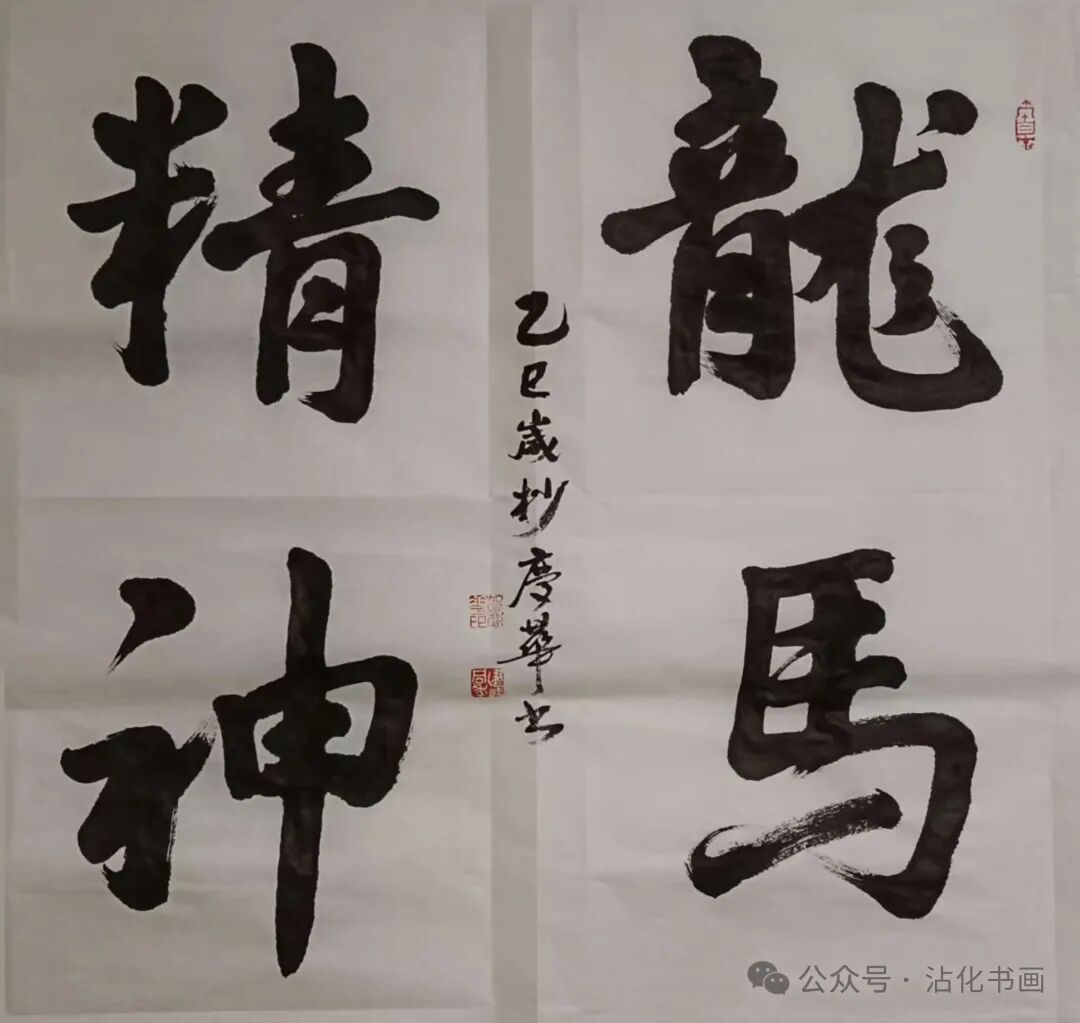 龍馬
精神
乙巳歲杪慶華书
公众号·沾化书画